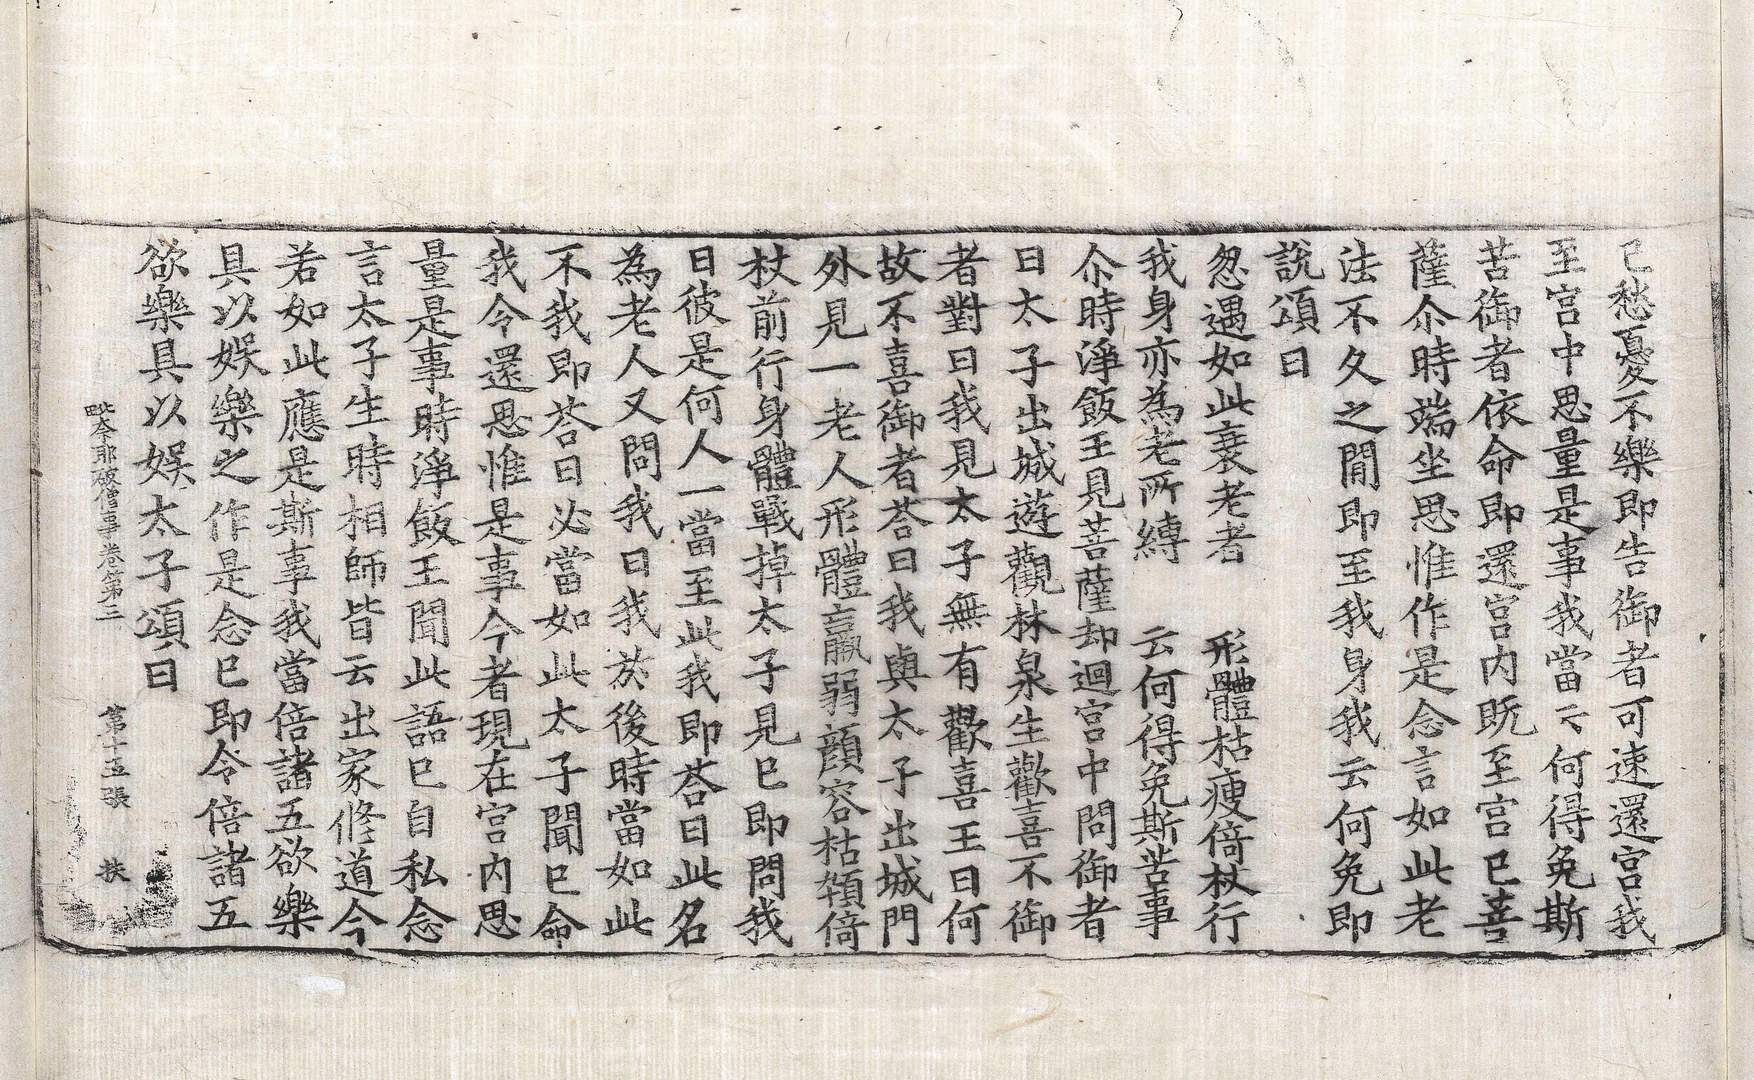 已愁憂不樂即告御者可速還宮我
至宮中思量是事我當云何得免斯
苦御者依命即還宮内既至宮已菩
薩尒時端坐思惟作是念言如此老
法不久之閒即至我身我云何免即
說頌曰
忽遇如此衰老者　形體枯瘦倚杖行
我身亦為老所縛　云何得免斯苦事
尒時淨飯王見菩薩却迴宮中問御者
曰太子出城遊觀林泉生歡喜不御
者對曰我見太子無有歡喜王曰何
故不喜御者荅曰我與太子出城門
外見一老人形體羸弱顔容枯顇倚
杖前行身體戰掉太子見已即問我
曰彼是何人一當至此我即荅曰此名
為老人又問我曰我於後時當如此
不我即荅曰必當如此太子聞已命
我令還思惟是事今者現在宮内思
量是事時淨飯王聞此語已自私念
言太子生時相師皆云出家修道今
若如此應是斯事我當倍諸五欲樂
具以娛樂之作是念已即令倍諸五
欲樂具以娛太子頌曰
毗奈耶破僧事卷第三　第十五張　扶